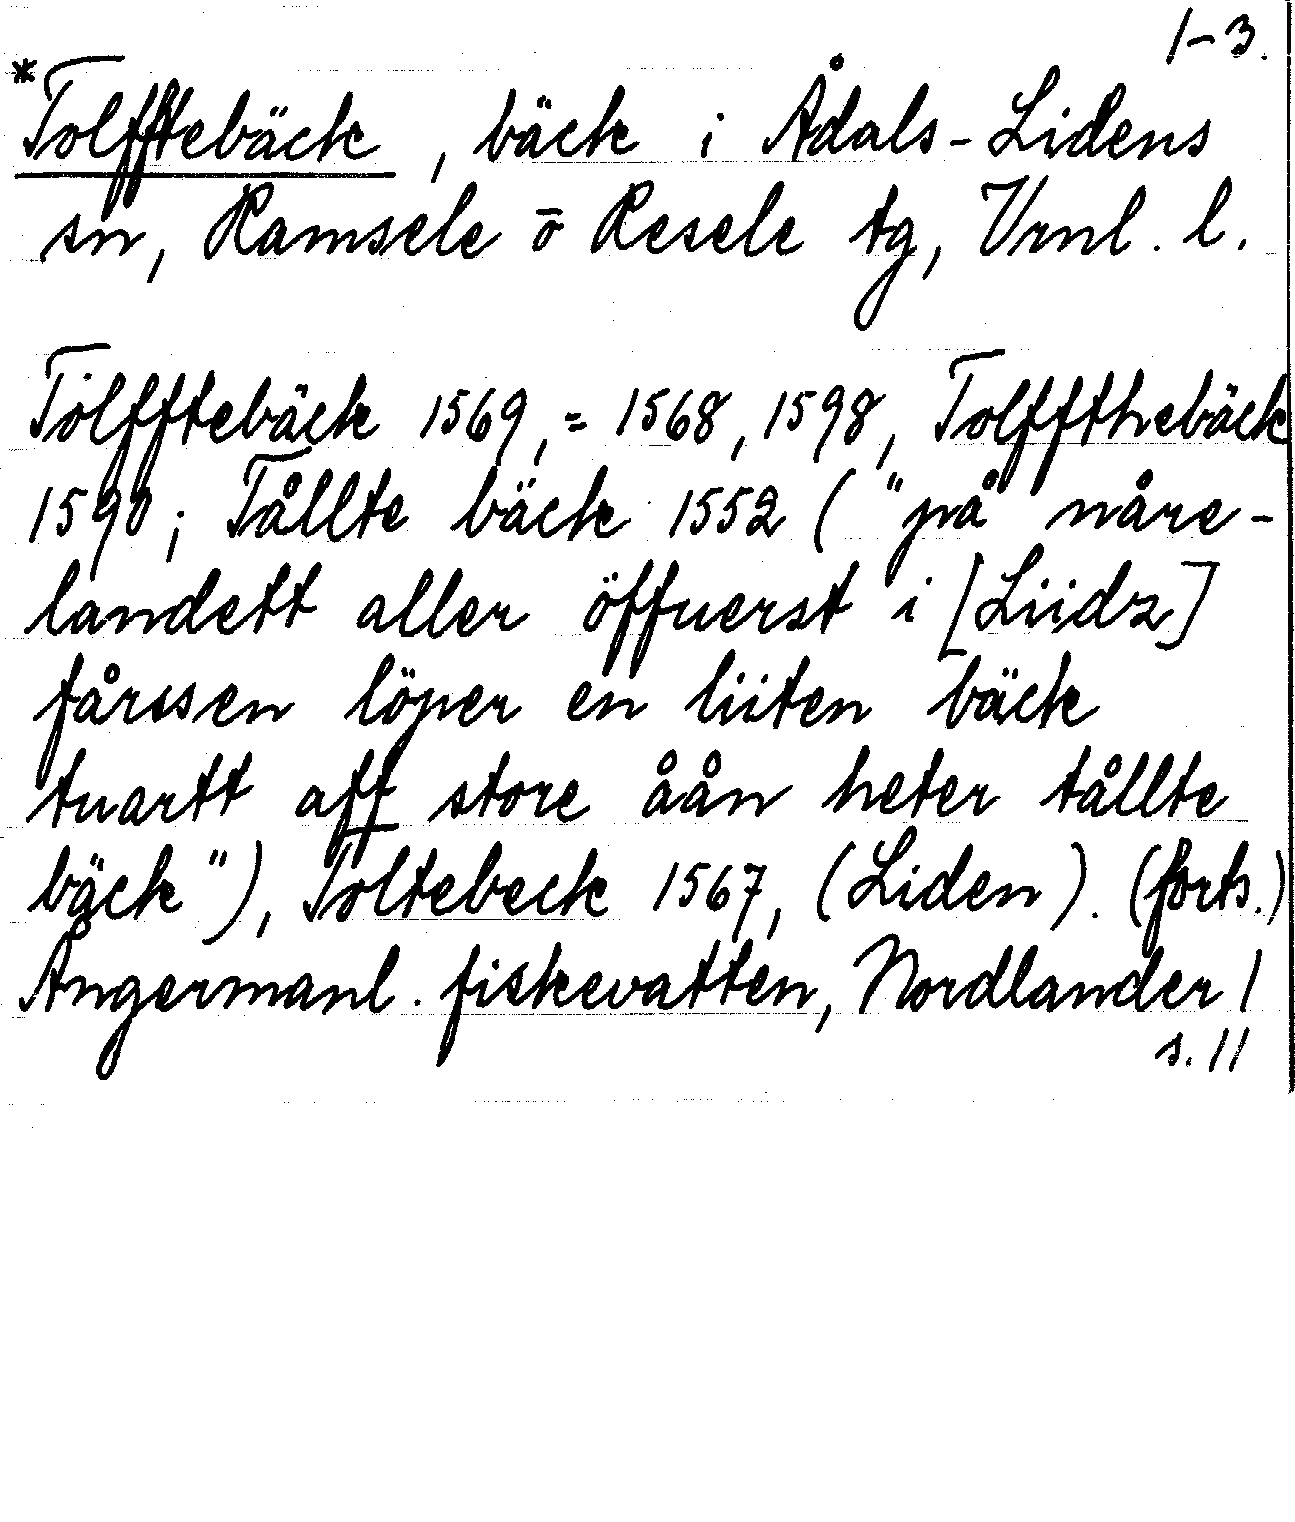 1-3.
*Tolfftebäck, bäck i Ådals-Lidens
sn, Ramsele o Resele tg, Vrnl. l.
Tolfftebäck 1569, = 1568, 1598, Tolffthebäck
1590; Tållte bäck 1552 ("på nåre-
landett aller öffuerst i [Liidz]
fårssen löper en liiten bäck
tuartt aff store åån heter tållte
bäck"), Toltebeck 1567, (Liden). (forts.)
Ångermanl. fiskevatten, Nordlander 1
s. 11